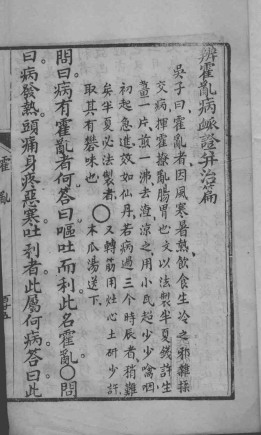 辨霍亂病脈證并治篇
吳子曰霍亂者因風寒暑熱飲食生冷之邪雜揉
交病揮霍撩亂腸胃也又以法製半夏錢許生
薑一片煎一沸去渣涼之用小匙超少少嚥咽
初起急進效如仙丹若病過三个時辰者稍難
矣半夏必法製者〇又轉筋用灶心土研少許
取其有礬味也 木瓜湯送下
問曰病有霍亂者何答曰嘔吐而利此名霍亂〇問
曰病發熱頭痛身疼惡寒吐利者此屬何病答曰此
霍亂